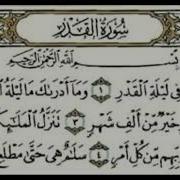 سُورَةُ القَدْرِ
بِسْمِ اللَّهِ الرَّحْمَٰنِ الرَّحِيمِ
فِي لَيْلَةِ الْقَدْرِ ١ وَمَا أَدْرَىٰكَ مَا لَيْلَةُ
خَيْرٌ مِّنْ أَلْفِ شَهْرٍ ٣ تَنَزَّلُ
رَبِّهِم مِّن كُلِّ أَمْرٍ ٤ سَلَٰمٌ هِيَ حَتَّىٰ مَطْلَعِ